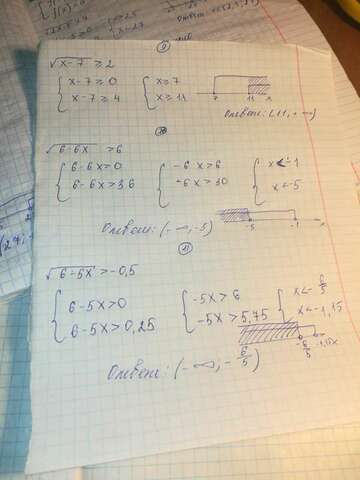 9
√x-7 ≥ 2
{ x-7 ≥ 0 { x ≥ 7
{ x-7 ≥ 4 { x ≥ 11
7 11 x
Ответ: (11, +∞)
10
√6-6x > 6
{ 6-6x > 0 { -6x > 6 { x < -1
{ 6-6x > 36 { -6x > 30 { x < -5
-5 -1 x
Ответ: (-∞, -5)
11
√6-5x > -0,5
{ 6-5x > 0 { -5x > 6 { x < -6/5
{ 6-5x > 0,25 { -5x > 5,75 { x < -1,15
-6/5 -1,15 x
Ответ: (-∞, -6/5)